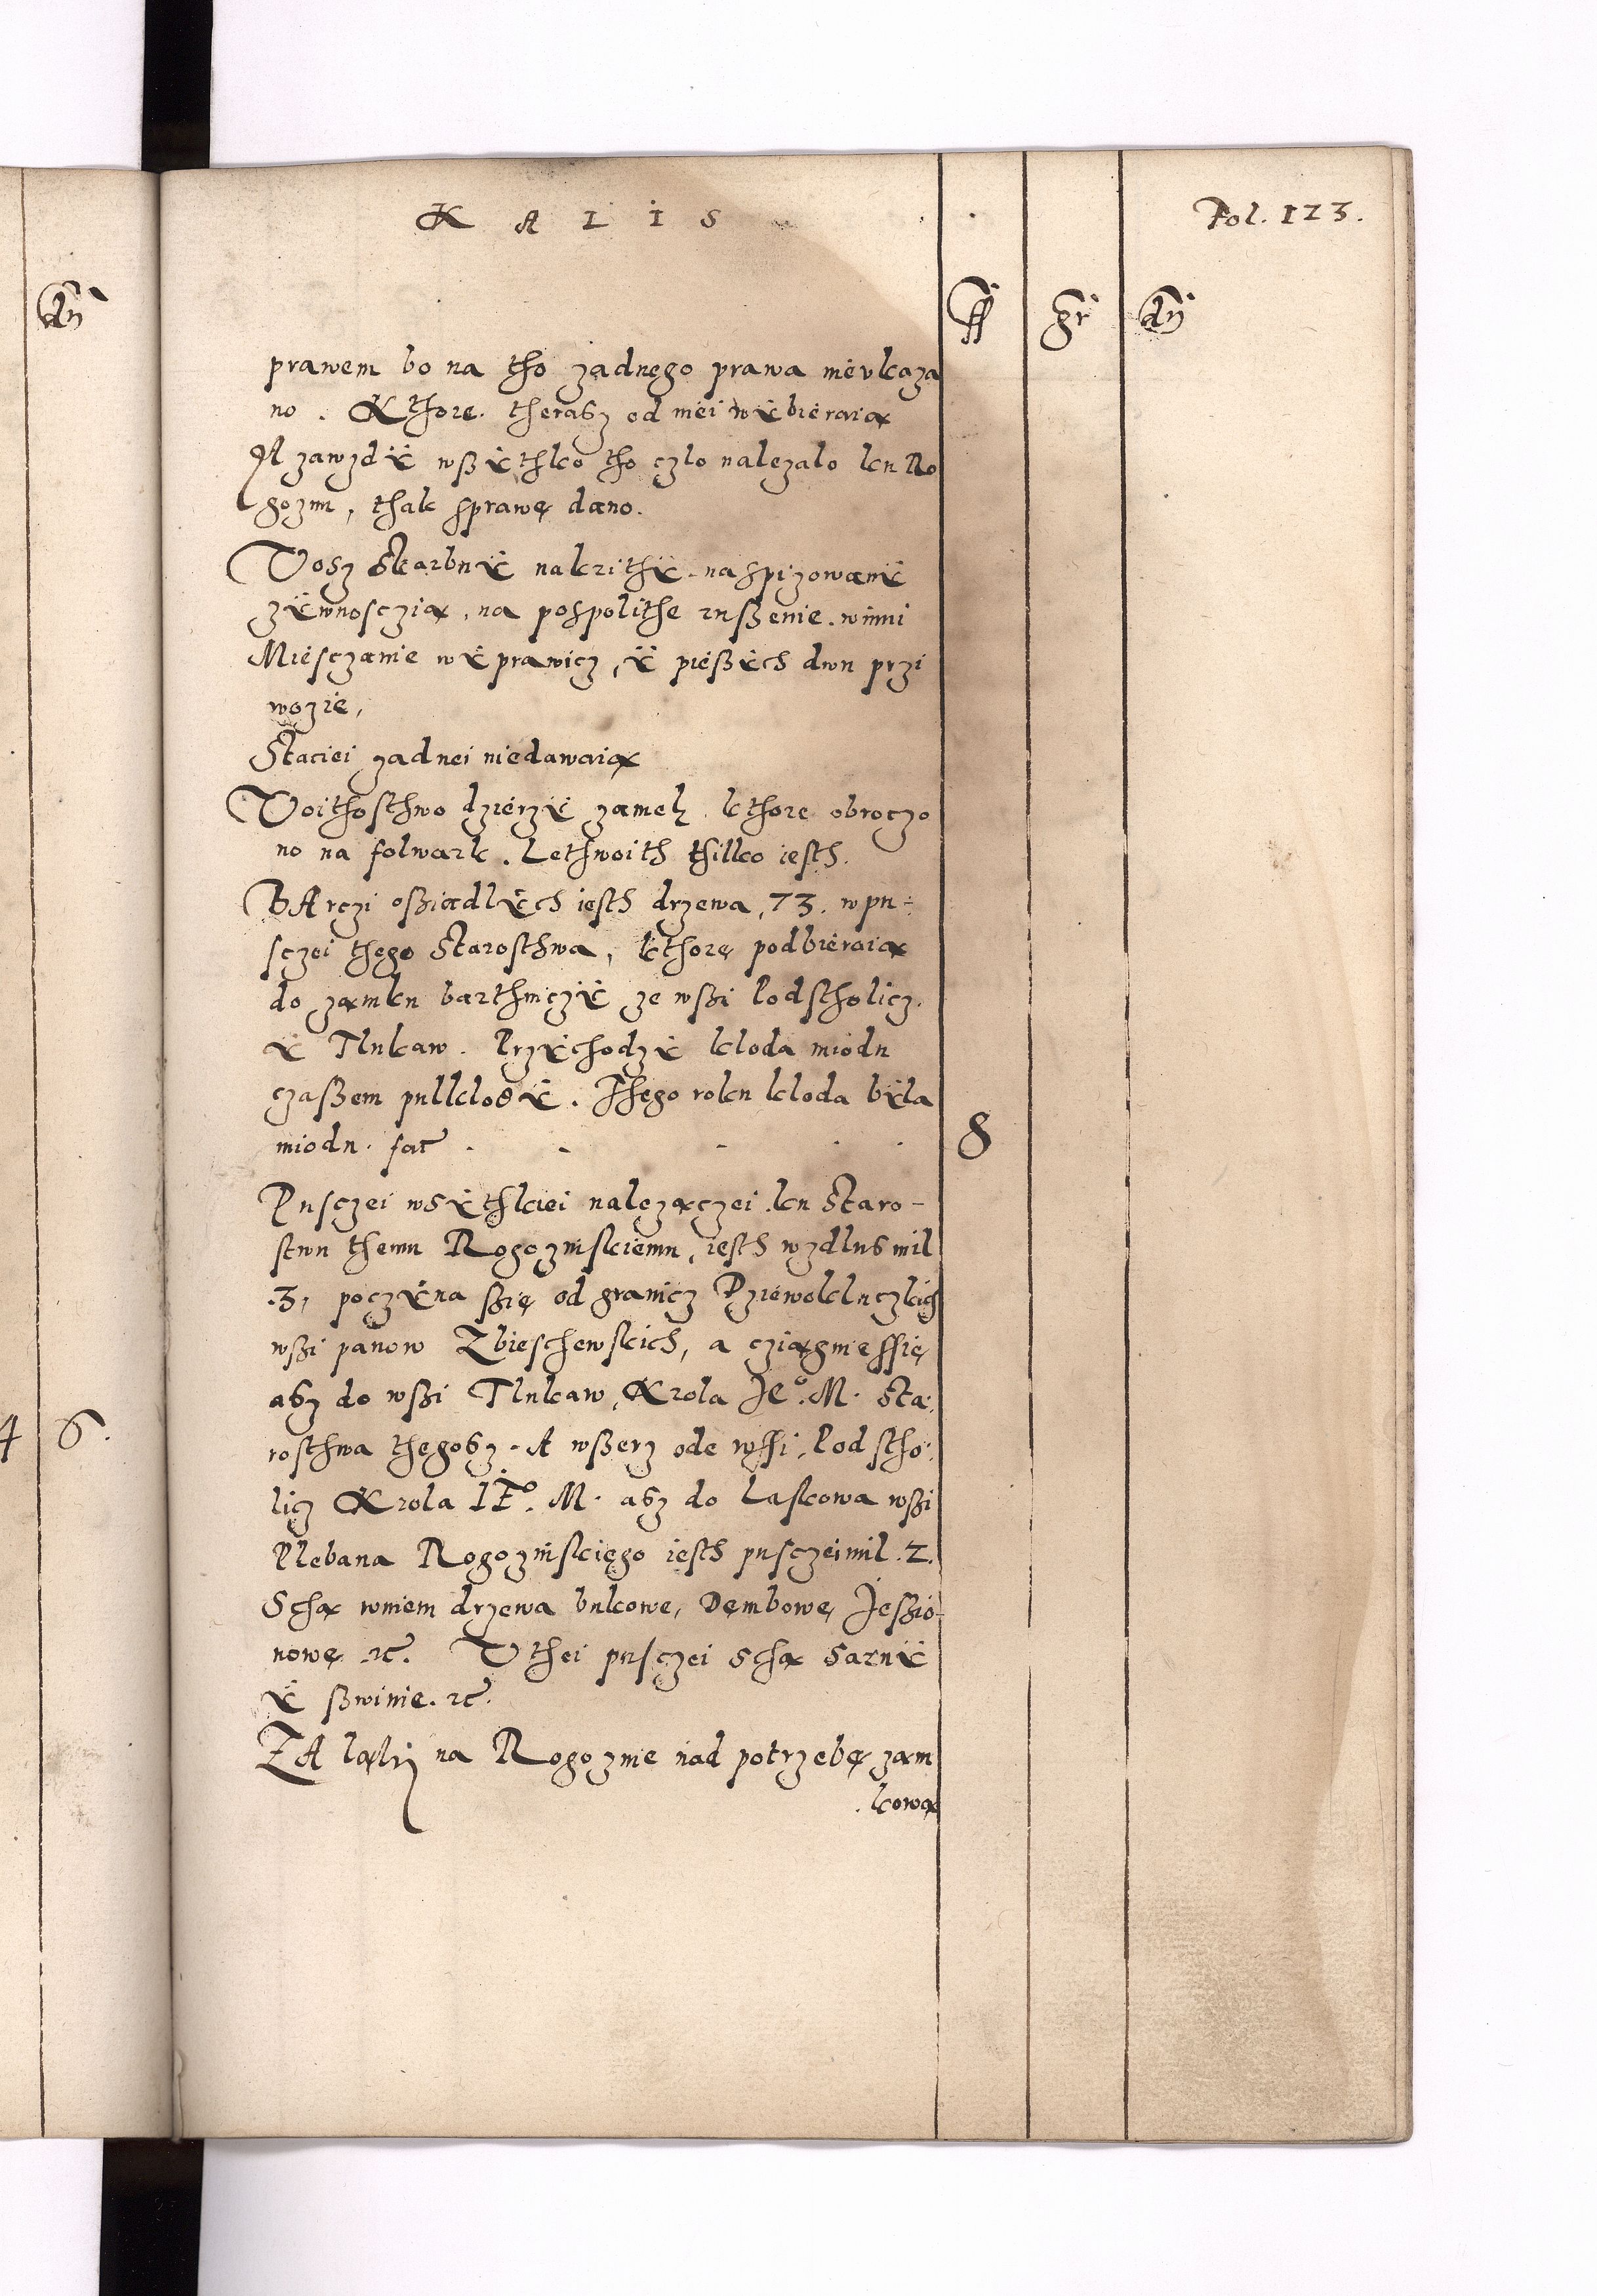 K A L I S
Fol. 123.
dn
ff gr dn
prawem bo na tho zadnego prawa nieukaza
no. Kthore. therasz od niei wÿbieraią
A zawzdÿ wßÿthko tho czlo nalezalo ku Ro
gozni, thak sprawę dano.
Vosz Skarbnÿ nakrithÿ. naspizowanÿ
zÿwnosczią, na pospolithe rußenie. winni
Miesczanie wÿprawicz, ÿ pießÿch dwu przi
wozie,
Staciei zadnei niedawaią
Voithosthwo dzierzÿ zamek kthore obroczo
no na folwark. Lethwoith thilko iesth.
BArczi oßiadlÿch iesth drzewa, 73. wpu-
sczei thego Starosthwa, kthorę podbieraią
do zamku barthniczÿ ze wßi Podstholicz.
ÿ Tlukaw. Przÿchodzÿ kloda miodu
czaßem pulklodÿ. Thego roku kloda bÿla
miodu. fac 8
Pusczei wsÿthkiei nalezączei ku Staro-
stwu themu Rogozniskiemu, iesth wzdlus mil
.3, poczÿna ßię od granicz Pziewoklu czkich
wßi panow Zbieschewskich, a cziągnie ssię
asz do wßi Tlukaw, Krola Je°. M. Sta.
rosthwa thegosz. A wßerz ode wssi, Podstho.
licz Krola JE°. M. asz do Laskowa wßi
Plebana Rogozniskięgo iesth pusczei mil. 2.
Schą wniem drzewa bukowe, Dęmbowę Jeßio-
nowę etc. V thei pusczei schą sarnÿ
ÿ ßwinie. etc.
ZA ląki na Rogoznie nad potrzebę zam
kową
4 6.